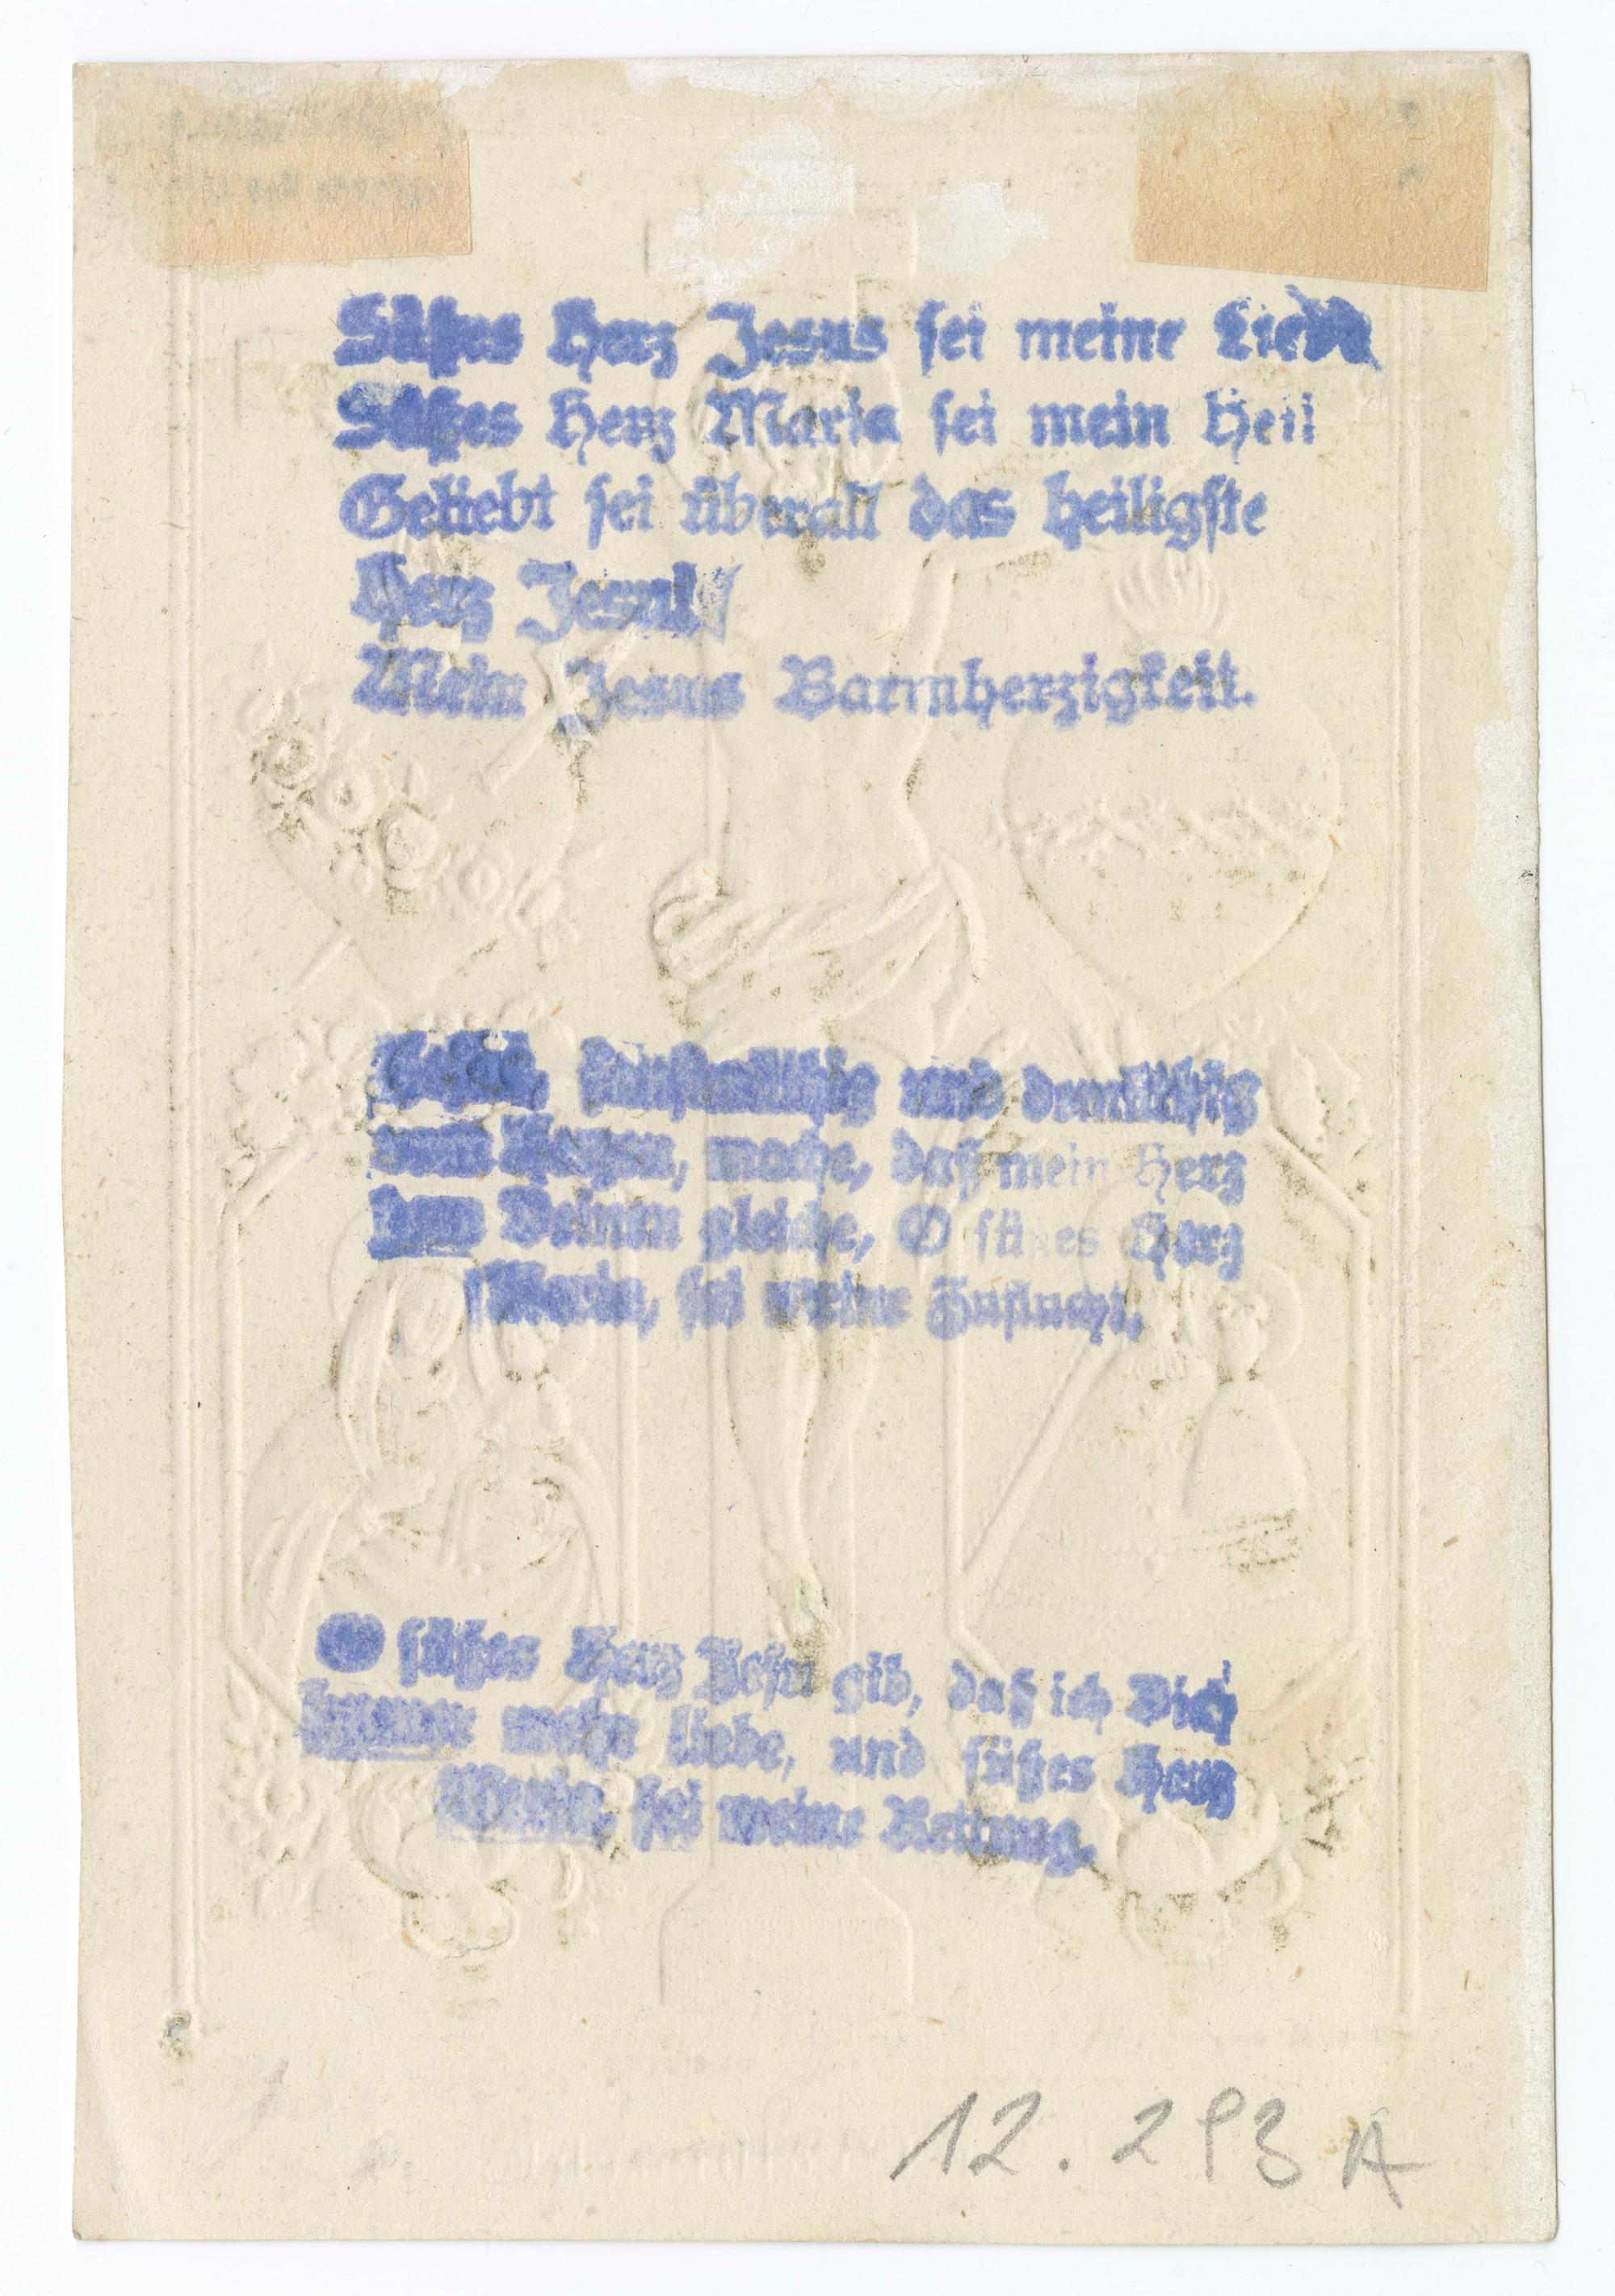 Süßes Herz Jesus sei meine Liebe
Süßes Herz Maria sei mein Heil
Geliebt sei überall das heiligste
Herz Jesu!
Mein Jesus Barmherzigkeit.
sanftmütig und demütig
vom Herzen, mache, daß mein Herz
dem Deinen gleiche, O süßes Herz
Maria, sei meine Zuflucht.
O süßes Herz Jesu gib, daß ich Dich
immer mehr liebe, und süßes Herz
Maria, sei meine Rettung.
12.293 A